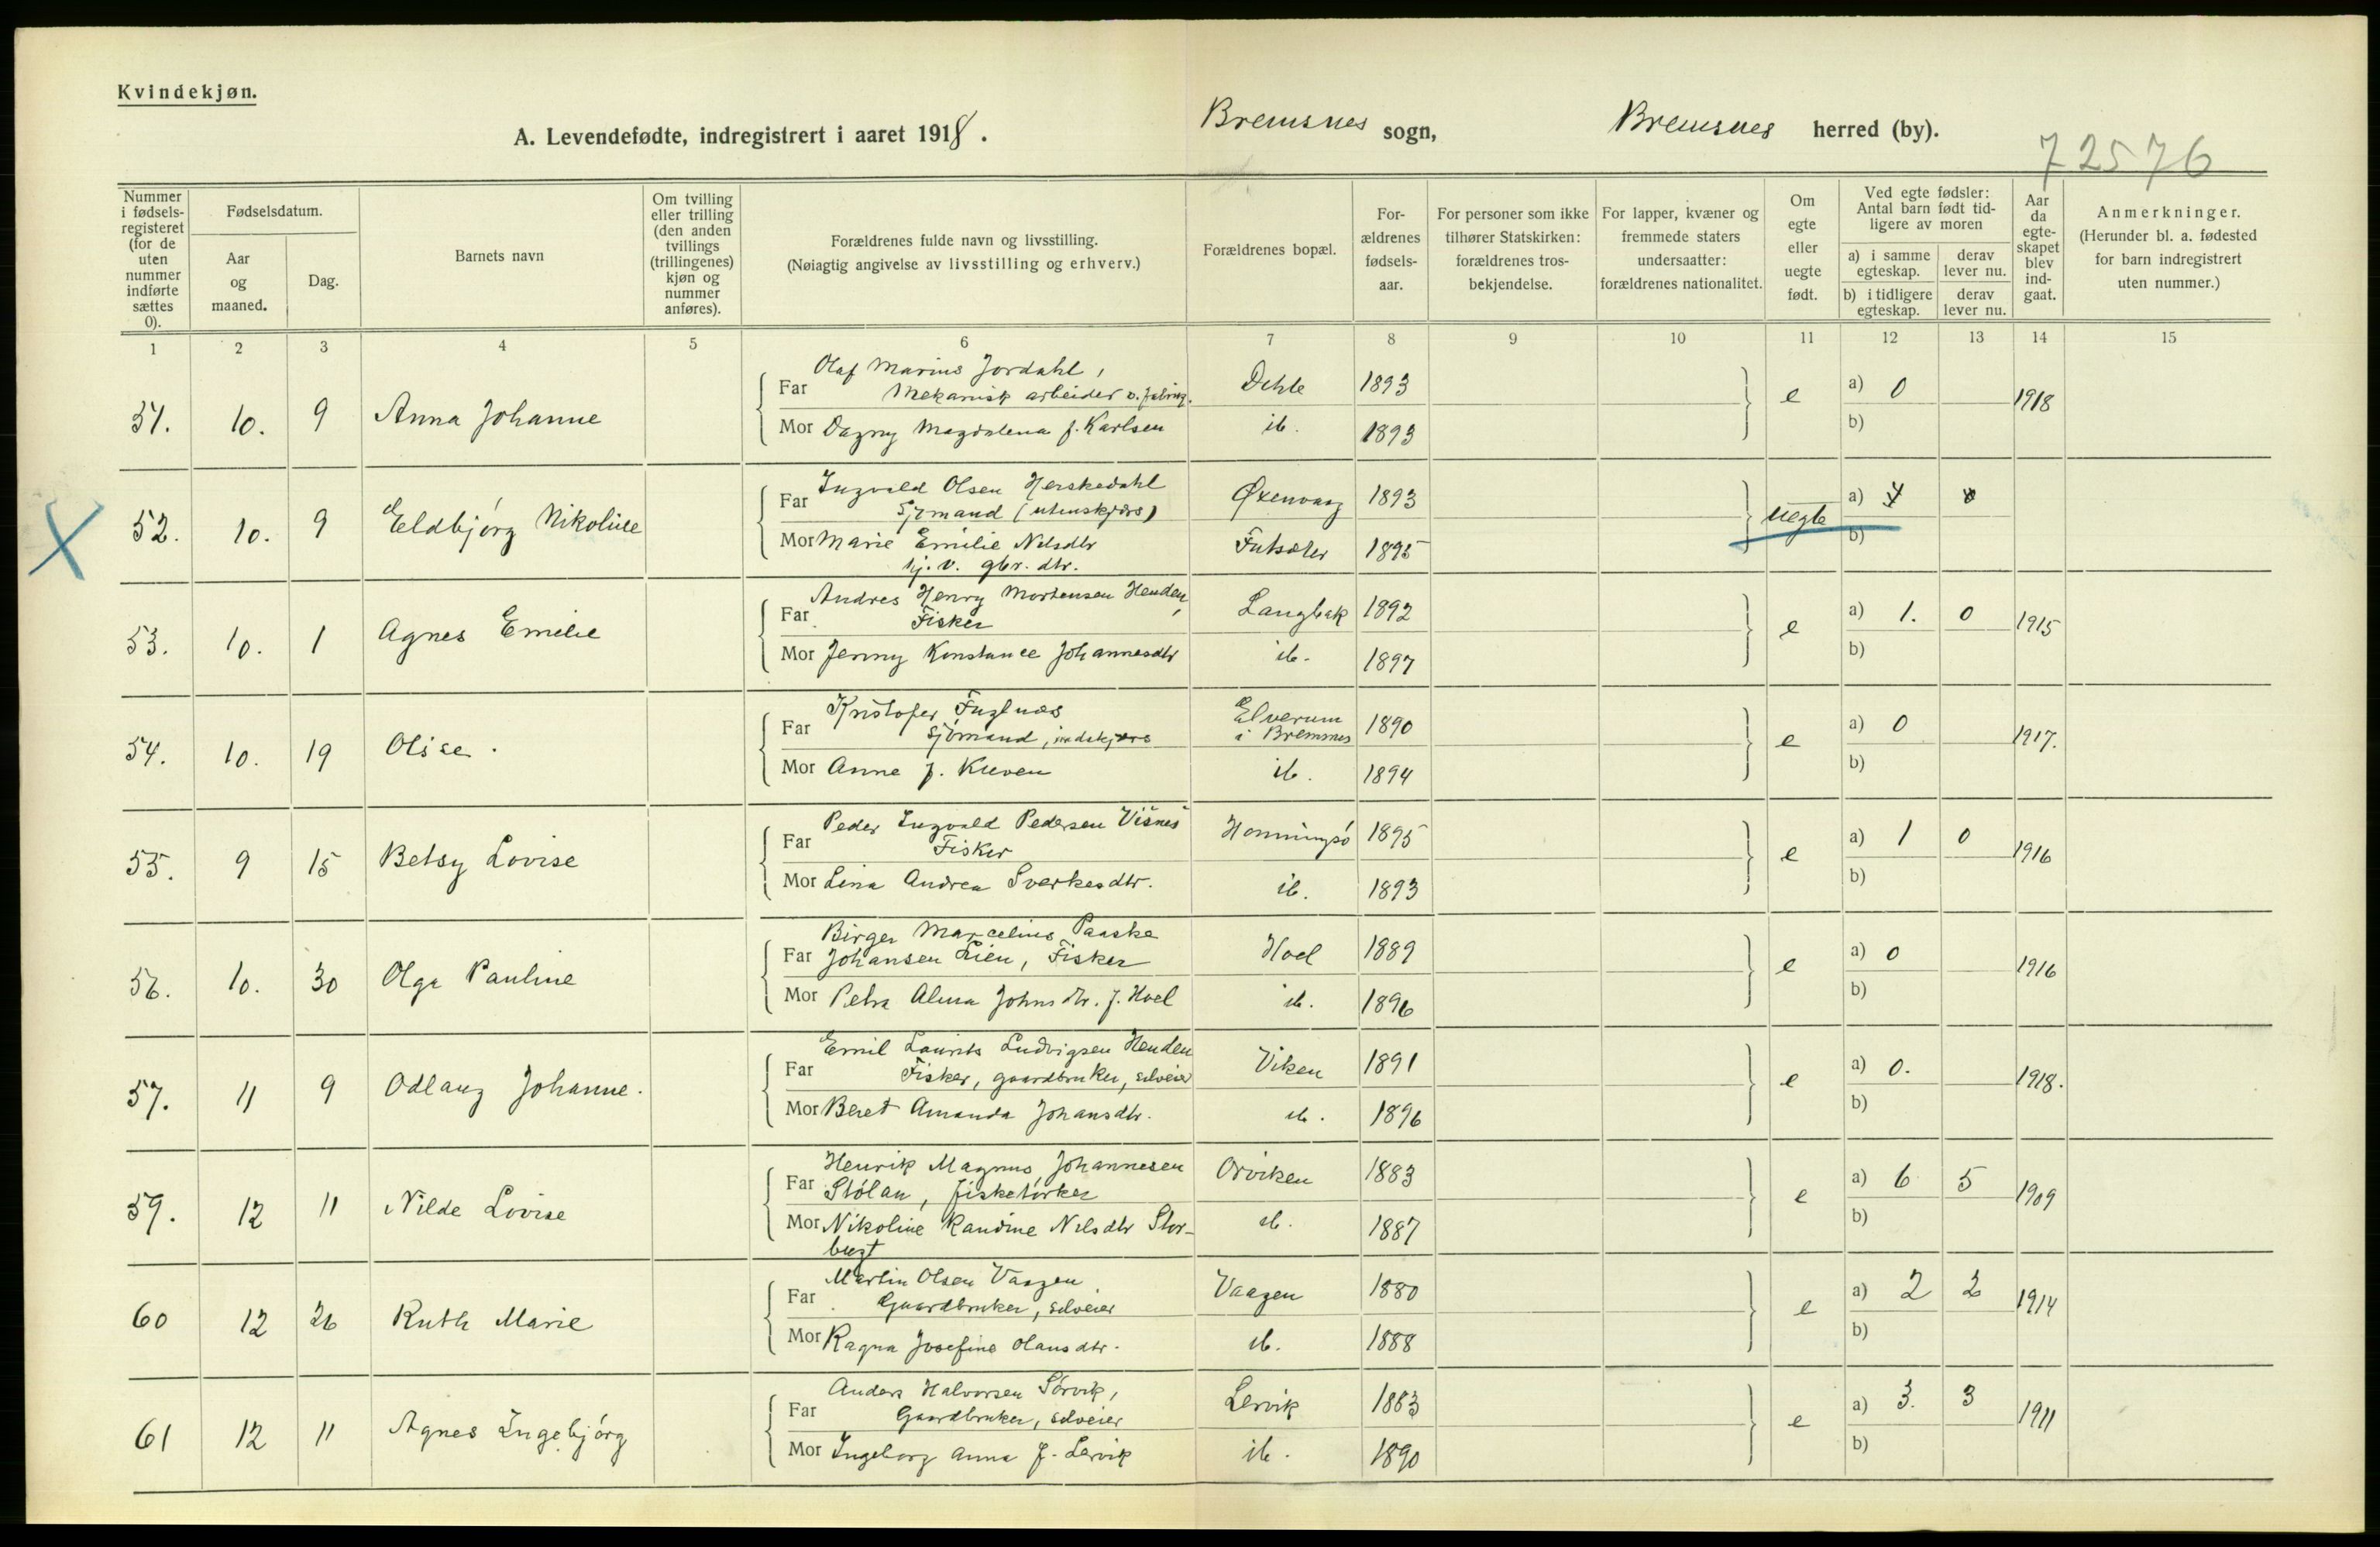 Kvindekjøn.
A. Levendefødte, indregistrert i aaret 1918.
Bremsnes sogn,
Bremsnes herred (by).
72576
Nummer i fødsels-registeret (for de uten nummer indførte sættes 0).
Fødselsdatum.
Aar og maaned.
Dag.
Barnets navn
Om tvilling eller trilling (den anden tvillings (trillingenes) kjøn og nummer anføres).
Forældrenes fulde navn og livsstilling.
(Nøiagtig angivelse av livsstilling og erhverv.)
Forældrenes bopæl.
For-ældrenes fødsels-aar.
For personer som ikke tilhører Statskirken: forældrenes tros-bekjendelse.
For lapper, kvæner og fremmede staters undersaatter: forældrenes nationalitet.
Om egte eller uegte født.
Ved egte fødsler: Antal barn født tid-ligere av moren
a) i samme egteskap.
derav lever nu.
b) i tidligere egteskap.
derav lever nu.
Aar da egte-skapet blev ind-gaat.
Anmerkninger.
(Herunder bl. a. fødested for barn indregistrert uten nummer.)
1 2 3 4 5 6 7 8 9 10 11 12 13 14 15
Olaf Marius Jordahl,
51. 10. 9 Anna Johanne Far Mekanisk arbeider v. Dehle 1893 e a) 0 1918
Mor Dagny Magdalena f. Karlsen ib. 1893 b)
Ingvald Olsen Herskedahl
52. 10. 9 Eldbjørg Nikoline Far Sjømand (utenskjærs) Øxenvaag 1893 uegte a)
Mor Marie Emilie Nilsdtr 1895 b)
tj. v. gbr. dtr.
Andres Henry Mortensen Henden,
53. 10. 1 Agnes Emelie Far Fisker Langbak 1892 e a) 1. 0 1915
Mor Jenny Konstance Johannesdtr ib. 1897 b)
Kristofer Fuglnæs
54. 10. 19 Olise. Far Sjømand, indskjærs Elverum i Bremsnes 1890 e a) 0 1917.
Mor Anne f. Kleven ib. 1894 b)
Peder Ingvald Pedersen Visnes
55. 9 15 Betsy Lovise Far Fisker Honningsø 1895 e a) 1 0 1916
Mor Lina Andrea Sverkesdtr. ib. 1893 b)
Birger Marcelius Paaske
56. 10. 30 Olga Pauline Far Johansen Lien, Fisker Hoel 1889 e a) 0 1916
Mor Petra Alma Johnsdtr. f. Hoel ib. 1896 b)
Emil Laurits Ludvigsen Henden
57. 11 9 Odlaug Johanne. Far Fisker, gaardbruker, selveier Viken 1891 e a) 0. 1918.
Mor Beret Amanda Johansdtr. ib. 1896 b)
Henrik Magnus Johannesen
59. 12 11 Nilde Lovise Far Stølan, fisketørker Orviken 1883 e a) 6 5 1909
Mor Nikoline Randine Nilsdtr Stor- ib. 1887 b)
bugt
Martin Olsen Vaagen
60 12 26 Ruth Marie Far Gaardbruker, selveier Vaagen 1880 e a) 2 2 1914
Mor Ragna Josefine Olausdtr. ib. 1888 b)
Anders Halvorsen Sørvik,
61 12 11 Agnes Ingebjørg Far Gaardbruker, selveier Lervik 1883 e a) 3. 3 1911
Mor Ingeborg Anna f. Lervik ib. 1890 b)